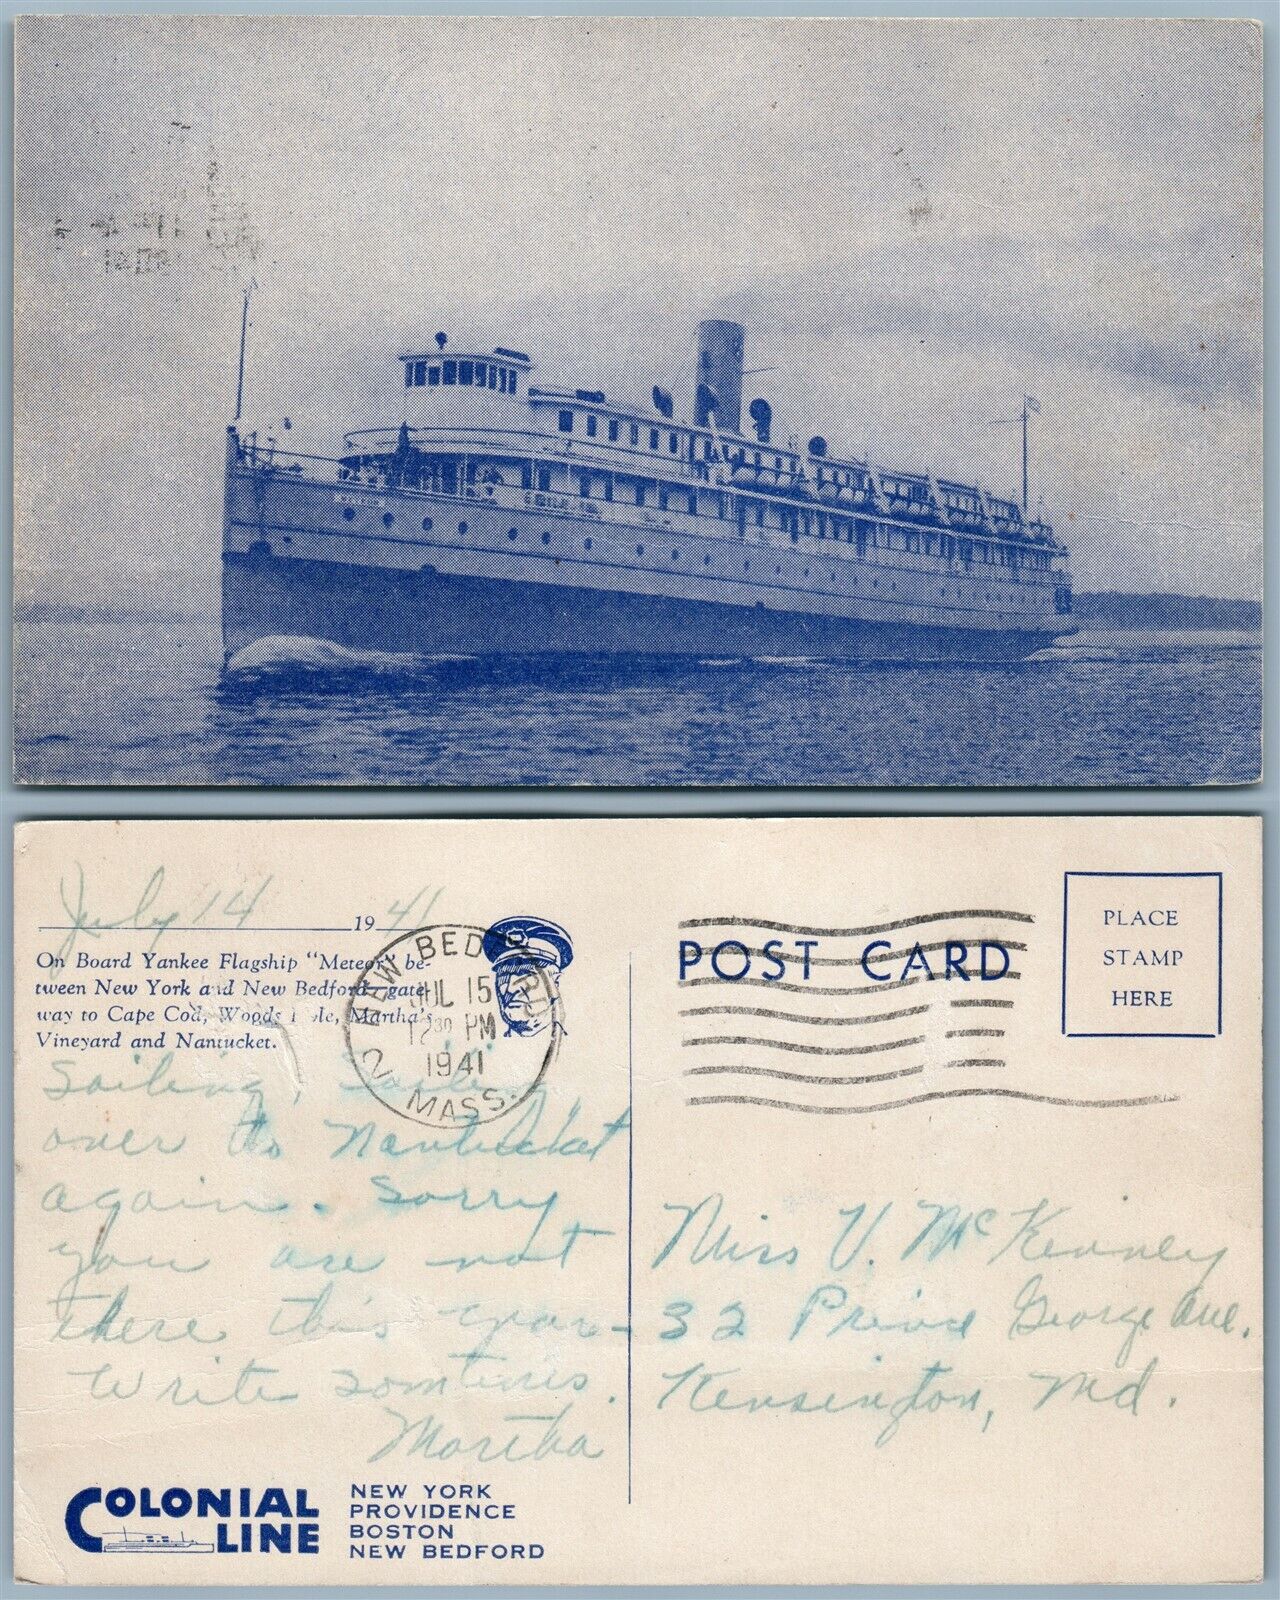 July 14 1941
On Board Yankee Flagship "Meteor" be-
tween New York and New Bedford—gate-
way to Cape Cod, Woods Hole, Martha's
Vineyard and Nantucket.
NEW BEDFORD
JUL 15
12 30 PM
1941
2
MASS.
Sailing, Sailing
over to Nantucket
again. Sorry
you are not
there this year-
Write somtimes.
Martha
COLONIAL
LINE
NEW YORK
PROVIDENCE
BOSTON
NEW BEDFORD
POST CARD
PLACE
STAMP
HERE
Miss V. McKenney
32 Prince George Ave.
Kensington, Md.